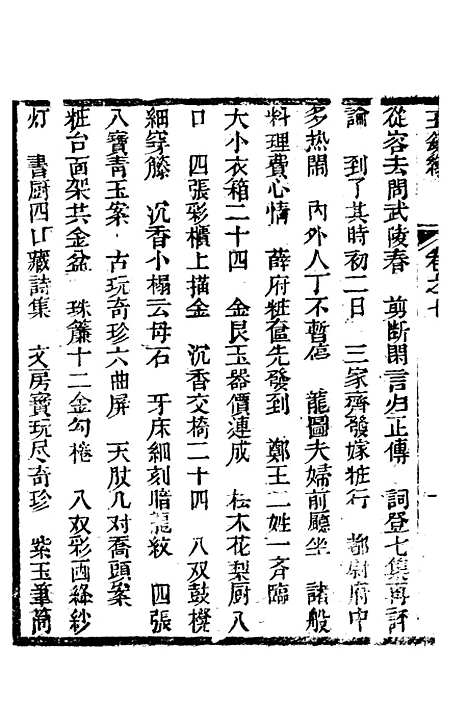 玉釧緣　卷之七　一
從容去問武陵春　剪断閑言归正傳　詞登七集再評
論　到了其時初二日　三家齊發嫁粧行　都尉府中
多热閙　內外人丁不暫停　龍圖夫婦前廳坐　諸般
料理費心情　薛府粧奩先發到　鄭王二姓一斉臨
大小衣箱二十四　金艮玉器價連成　桂木花梨厨八
口　四張彩櫃上描金　沉香交椅二十四　八双鼓櫈
細穿籐　沉香小榻云母石　牙床細刻暗龍紋　四張
八寶靑玉案　古玩奇珍六曲屏　天肰几对喬頭案
粧台面架共金盆　珠簾十二金勾捲　八双彩西絳紗
灯　書厨四口藏詩集　文房寶玩尽奇珍　紫玉筆筒